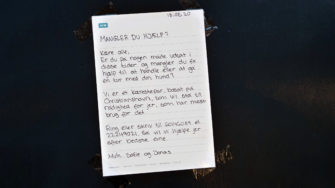 18.03.20
MANGLER DU HJÆLP?
Kære alle,
Er du på nogen måde udsat i
disse tider og mangler du en
hjælp til at handle eller at gå
en tur med din hund?
Vi er et kærestepar, bosat på
Christianshavn, som vil stå til
rådighed for jer, som har mest
brug for det.
Ring eller skriv til
så vil vi hjælpe jer
efter bedste evne.
Mvh. Sofie og Jonas